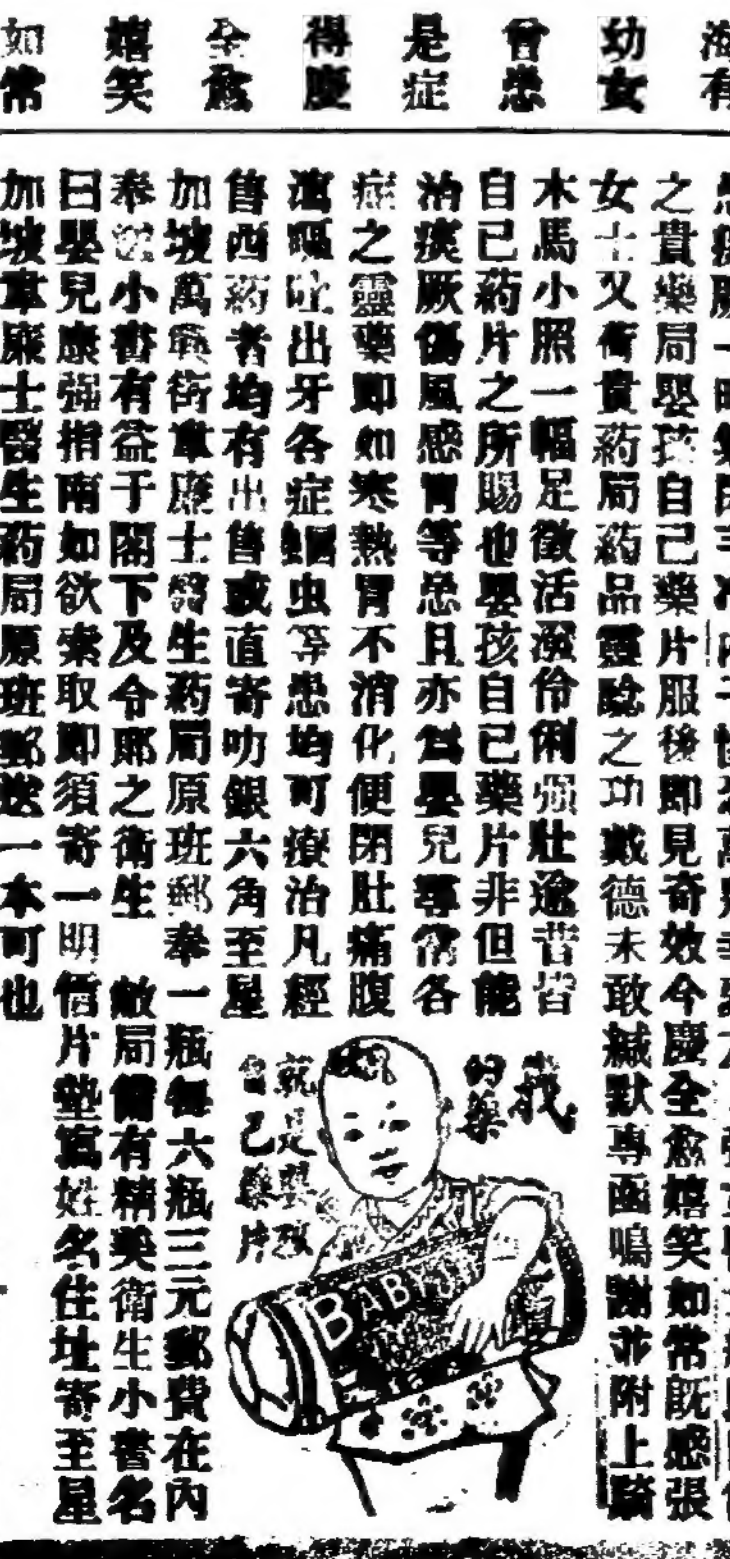 海有
幼女
曾患
是症
得慶
全愈
嬉笑
如常
之貴藥局嬰孩自己藥片服後即見奇效今慶全愈嬉笑如常既感張
女士又荷貴葯局葯品靈騐之功戴德未敢緘默專凾鳴謝並附上騎
木馬小照一幅足徵活潑伶俐壯逾昔皆
自己葯片之所賜也嬰孩自己藥片非但能
治痰厥傷風感冒等患且亦爲嬰兒尋常各
症之靈藥即如寒熱胃不消化便閉肚痛腹
瀉嘔吐出牙各症蛔虫等患均可療治凡經
售西葯者均有出售或直寄叻銀六角至星
加坡萬街韋廉士醫生葯局原班郵奉一瓶每六瓶三元郵費在內
奉送小書有益于閣下及令郎之衛生 敝局備有精美衛生小書名
曰嬰兒康强指南如欲索取即須寄一明信片寫姓名住址寄至星
加坡韋廉士醫生葯局原班郵送一本可也
我
的藥
就是嬰孩
自己藥片
BABY'S